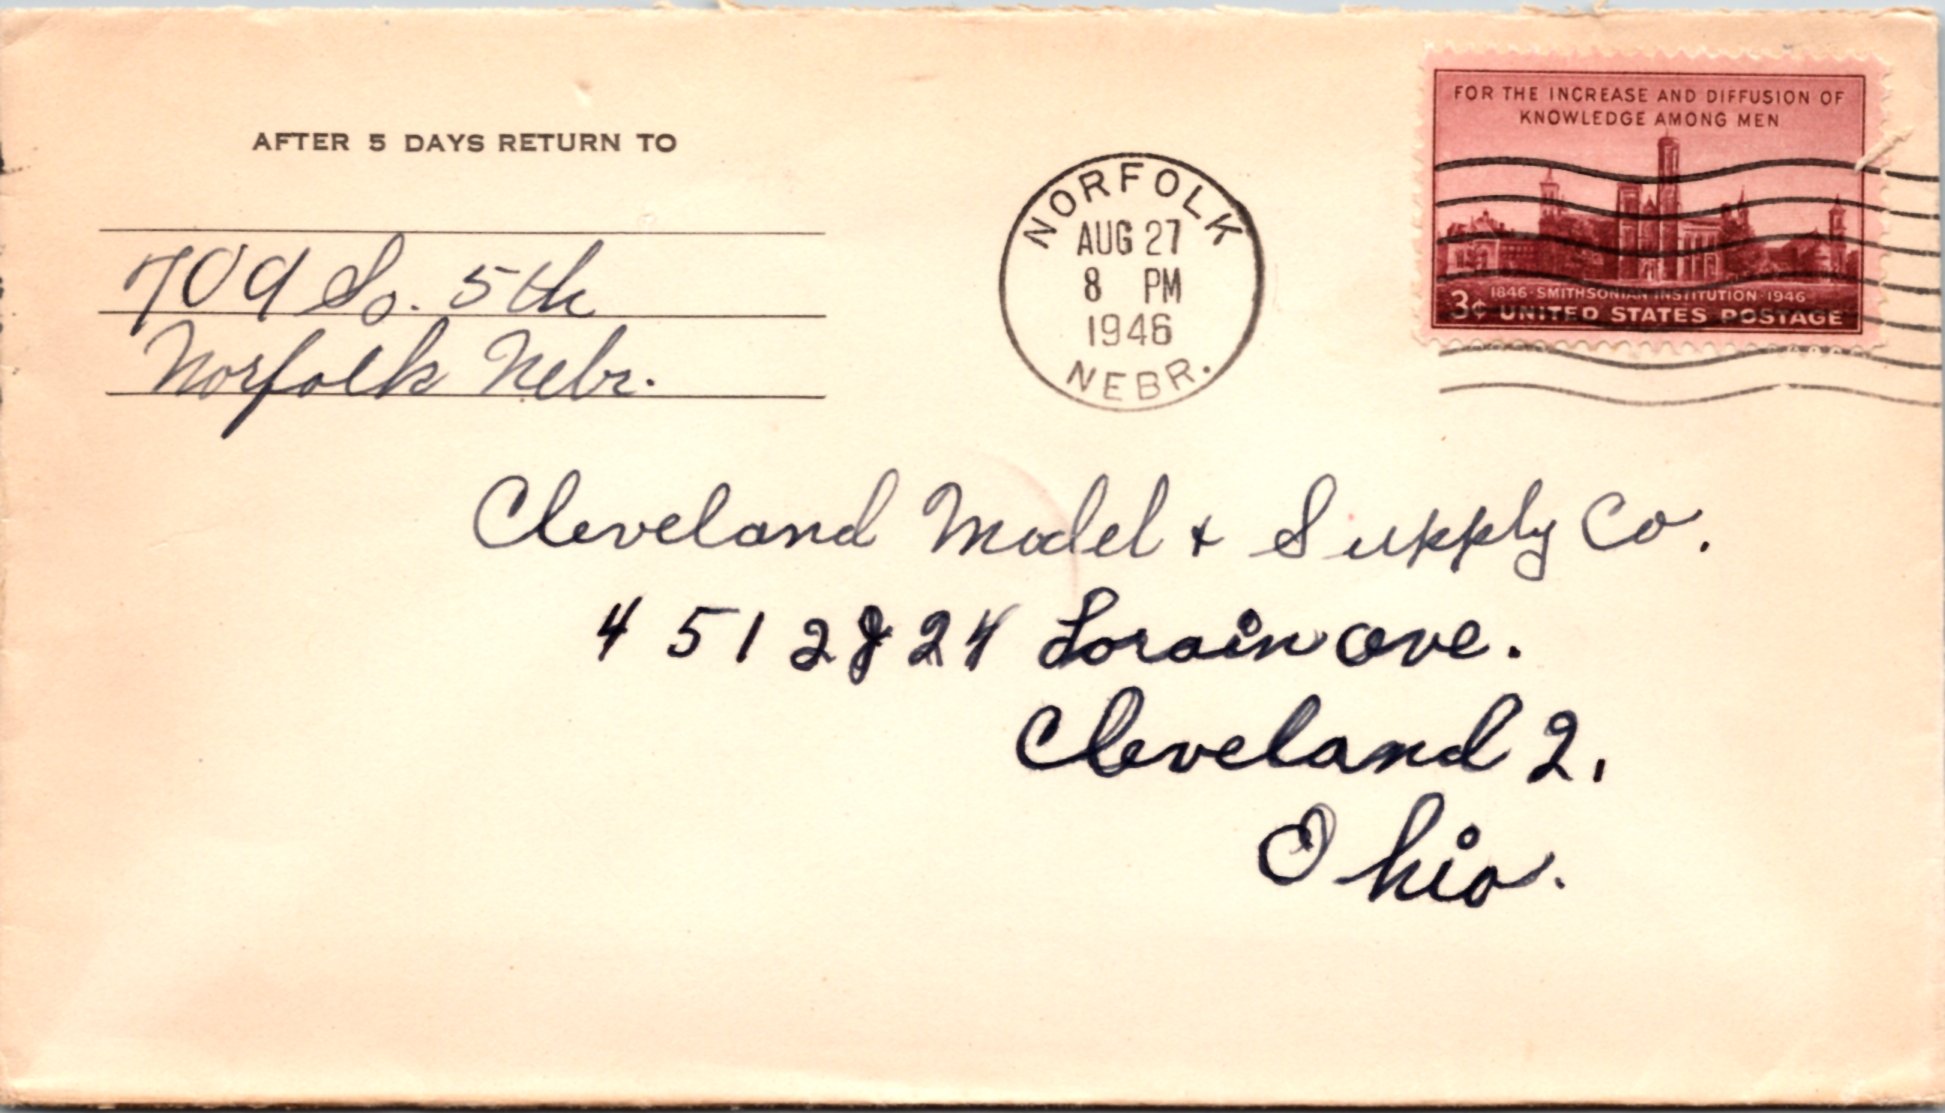 AFTER 5 DAYS RETURN TO
709 So. 5th
Norfolk Nebr.
NORFOLK
AUG 27
8 PM
1946
NEBR.
FOR THE INCREASE AND DIFFUSION OF
KNOWLEDGE AMONG MEN
1846 · SMITHSONIAN INSTITUTION · 1946
3¢ UNITED STATES POSTAGE
Cleveland Model & Supply Co.
Lorain Ave.
Cleveland 2,
Ohio.